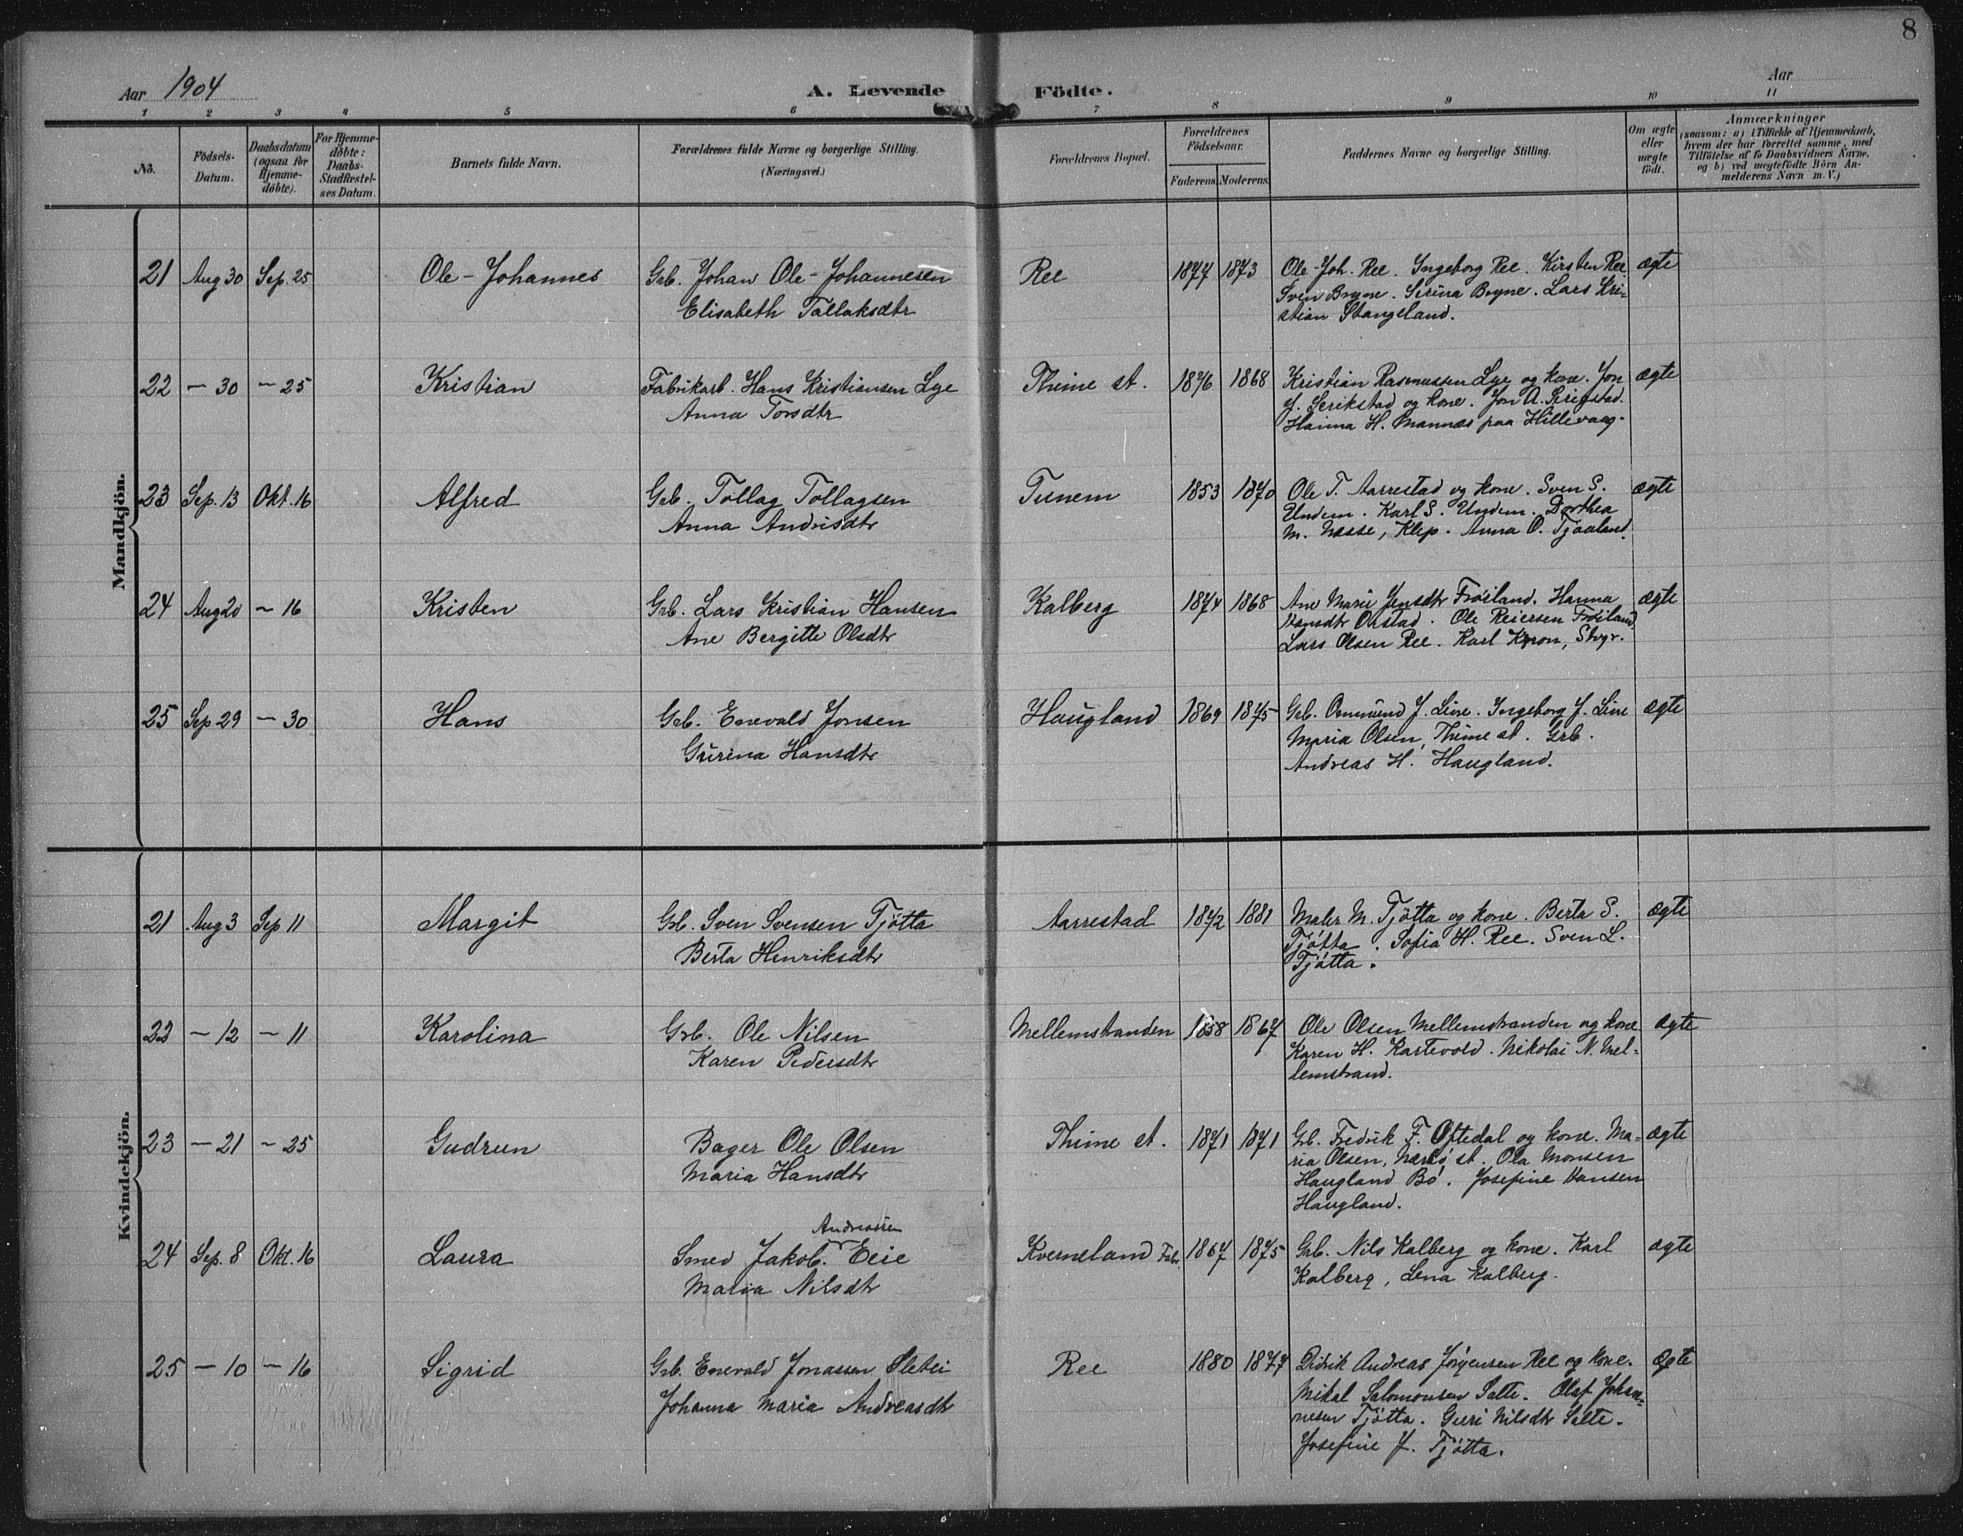 8
Aar 1904 A. Levende Födte. Aar
1 2 3 4 5 6 7 8 9 10 11
No. Födsels-Datum. Daabsdatum (ogsaa for Hjemme-döbte). For Hjemme-döbte: Daabs-Stadfæstel-ses Datum. Barnets fulde Navn. Forældrenes fulde Navne og borgerlige Stilling. (Næringsvei.) Forældrenes Bopæl. Forældrenes Födselsaar. Faderens. Moderens. Faddernes Navne og borgerlige Stilling. Om ægte eller uægte födt. Anmærkninger (saasom: a) i Tilfælde af Hjemmedaab, hvem der har forrettet samme, med Tilföielse af to Daabsvidners Navne, og b) ved uegtefödte Börn An-melderens Navn m. V.)
Mandkjön.
21 Aug 30 Sep. 25 Ole-Johannes Grb. Johan Ole-Johannesen Ree 1877 1873 Ole-Joh. Ree. Ingeborg Ree. Kirsten Ree ægte
Elisabeth Tallaksdtr Sven Bryne. Serina Bryne. Lars Kri-
stian Stangeland.
22 - 30 - 25 Kristian Fabrikarb. Hans Kristiansen Lye Thime st. 1876 1868 Kristian Rasmussen Lye og kone. Jon ægte
Anna Torsdtr J. Serikstad og kone. Jon A. Serigstad.
Hanna H. Mannæs paa Hillevaag.
23 Sep. 13 Okt. 16 Alfred Grb. Tollag Tollagsen Tunem 1853 1870 Ole T. Aarrestad og kone. Sven S. ægte
Anna Andrisdtr Undem. Karl S. Undem. Dorthea
M. Næsse, Klep. Anna O. Tjaaland.
24 Aug 20 - 16 Kristen Grb. Lars Kristian Hansen Kalberg 1874 1868 Ane Marie Jensdtr Fröiland. Hanna ægte
Ane Bergitte Olsdtr Hansdtr Orstad. Ole Reiersen Fröiland
Lars Olsen Ree. Karl Kron, Stvgr.
25 Sep 29 - 30 Hans Grb. Enevald Jonsen Haugland 1869 1875 Grb. Osmund J. Line. Ingeborg J. Line ægte
Gurina Hansdtr Maria Olsen, Thime st. Grb.
Andreas H. Haugland.
Kvindekjön.
21 Aug 3 Sep 11 Margit Grb. Sven Svensen Tjötta Aarrestad 1872 1881 Maler M. Tjötta og kone. Berta S. ægte
Berta Henriksdtr Tjötta. Sofia H. Ree. Sven L.
Tjötta.
22 - 12 - 11 Karolina Grb. Ole Nilsen Mellemstranden 1858 1867 Ole Olsen Mellemstranden og kone ægte
Karen Pedersdtr Karen H. Kartevold. Nikolai N. Mel-
lemstrand.
23 - 21 - 25 Gudrun Bager Ole Olsen Thime st. 1871 1871 Grb. Fredrik F. Oftedal og kone. Ma- ægte
Maria Hansdtr ria Olsen, Nærbö st. Ola Monsen
Haugland Bö. Josefine Hansen
Haugland.
Andreasen
24 Sep. 8 Okt. 16 Laura Smed Jakob Eeie Kverneland Fabr. 1867 1875 Grb. Nils Kalberg og kone. Karl ægte
Maria Nilsdtr Kalberg, Lena Kalberg.
25 - 10 - 16 Sigrid Grb. Enevald Jonassen Sletei Ree 1880 1877 Didrik Andreas Jörgensen Ree og kone. ægte
Johanna Maria Andreasdtr Mikal Salomonsen Salte. Olaf Johan-
nesen Tjötta. Guri Nilsdtr Salte.
Josefine J. Tjötta.